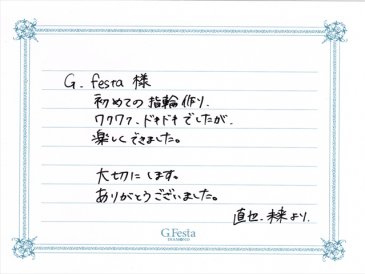 G. festa 様
初めての指輪作り、
ワクワク、ドキドキでしたが、
楽しくできました。
大切にします。
ありがとうございました。
直也、未来より.
G.Festa
DIAMOND